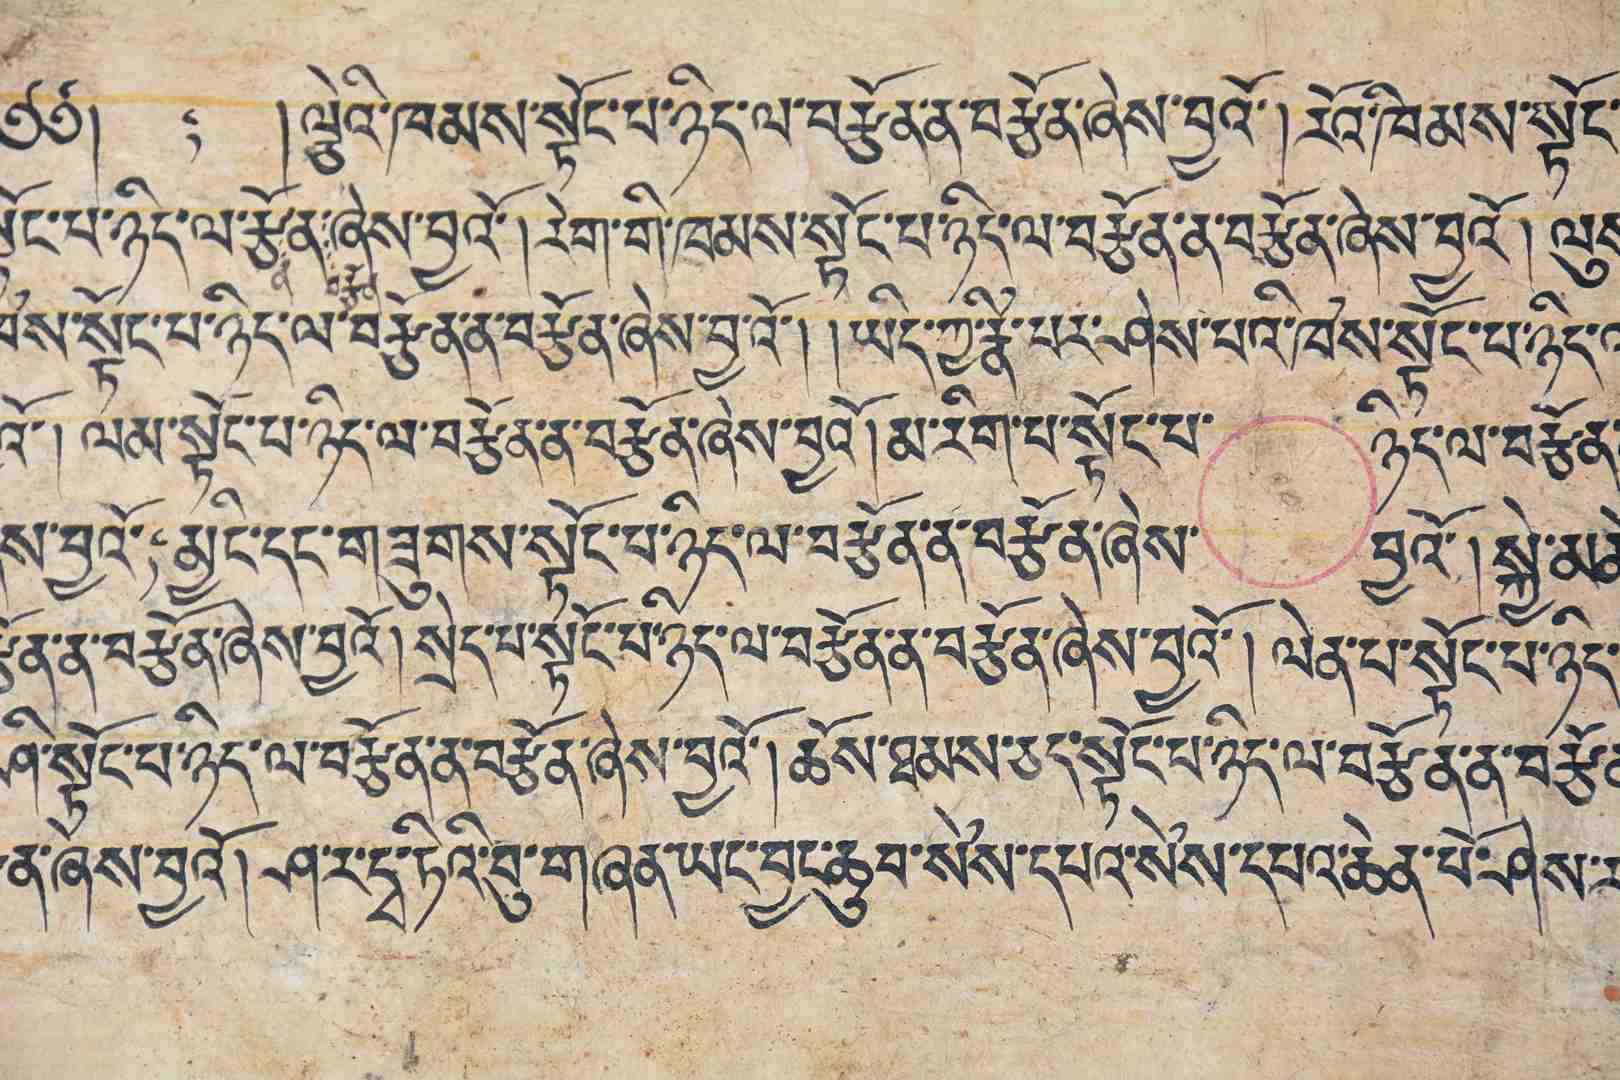 ༄༅། ། །ལྕེའི་ཁམས་སྟོང་པ་ཉིད་ལ་བརྩོན་ན་བརྩོན་ཞེས་བྱའོ། །རོའི་ཁམས་སྟོང་
སྟོང་པ་ཉིད་ལ་རྩོན་ཞེས་བྱའོ། །རེག་གི་ཁམས་སྟོང་པ་ཉིད་ལ་བརྩོན་ན་བརྩོན་ཞེས་བྱའོ། །ལུས་
སྟོང་པ་ཉིད་ལ་བརྩོན་ན་བརྩོན་ཞེས་བྱའོ། །ཡིད་ཀྱི་རྣཾ་པར་ཤེས་པའི་ཁཾས་སྟོང་པ་ཉིད་ལ་
འོ། །ལམ་སྟོང་པ་ཉིད་ལ་བརྩོན་ན་བརྩོན་ཞེས་བྱའོ། །མ་རིག་པ་སྟོང་པ་ ཉིད་ལ་བརྩོན་
ས་བྱའོ། །མྱིང་དང་གཟུགས་སྟོང་པ་ཉིད་ལ་བརྩོན་ན་བརྩོན་ཞེས་ བྱའོ། །སྐྱེ་མཆེ
རྩོན་ན་བརྩོན་ཞེས་བྱའོ། །སྲེད་པ་སྟོང་པ་ཉིད་ལ་བརྩོན་ན་བརྩོན་ཞེས་བྱའོ། །ལེན་པ་སྟོང་པ་ཉིད་
ཤི་སྟོང་པ་ཉིད་ལ་བརྩོན་ན་བརྩོན་ཞེས་བྱའོ། །ཆོས་ཐམས་ཅད་སྟོང་པ་ཉིད་ལ་བརྩོན་ན་བརྩོན་
ན་ཞེས་བྱའོ། །ཤ་ར་དྭ་ཏིའི་བུ་གཞན་ཡང་བྱང་ཆུབ་སེཾས་དཔའ་སེཾས་དཔའ་ཆེན་པོ་ཤེས་